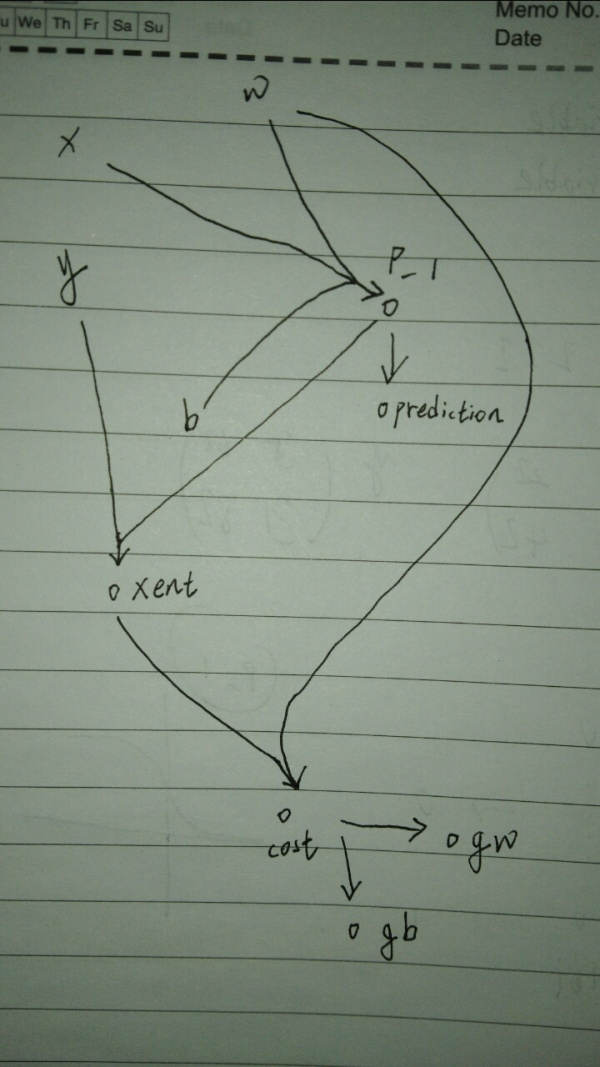 We Th Fr Sa Su
Memo No.
Date
w
x
P_1
y
o
o prediction
b
o xent
o
cost
o gw
o gb